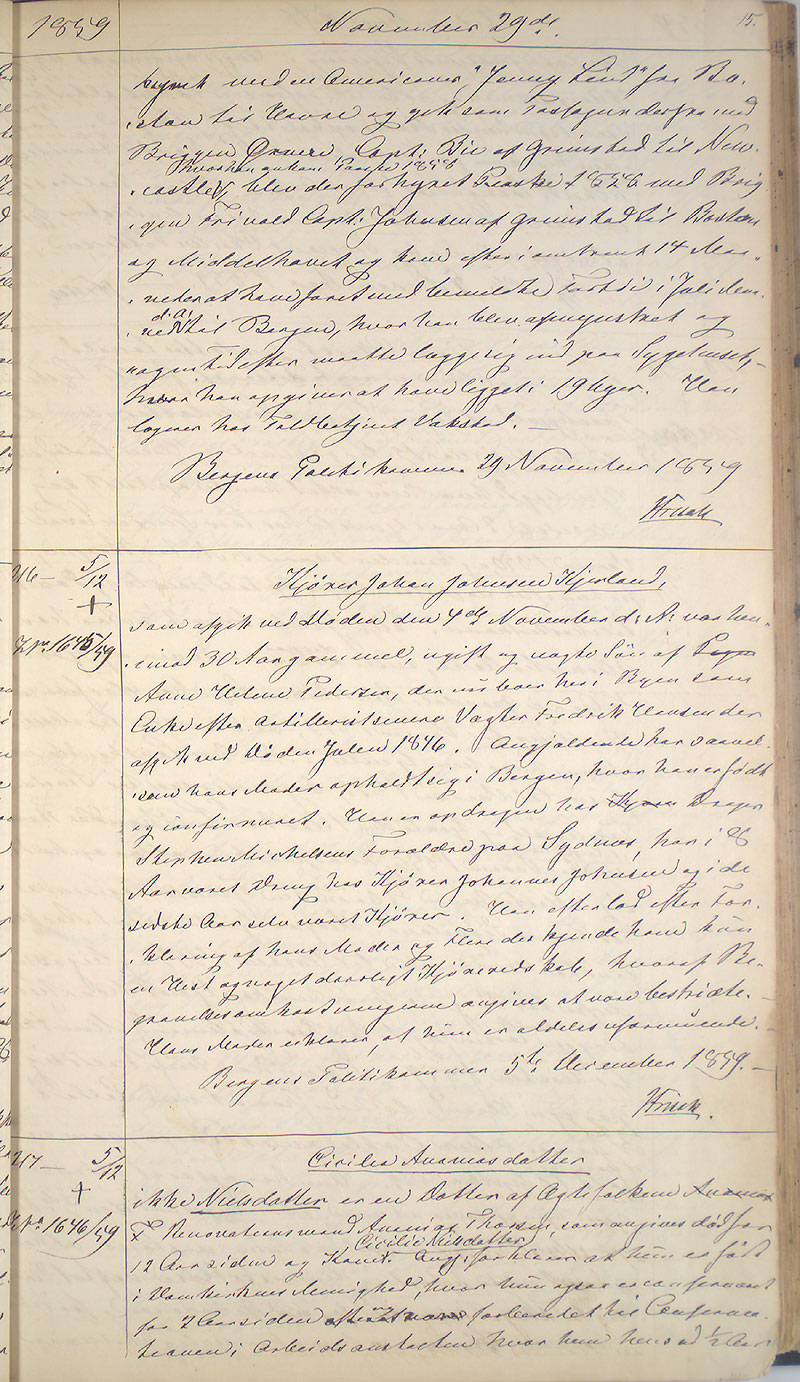 1859 November 29de. 15.
hyret med en Americaner "Jenny Lind" fra Bo-
ston til Havre og gik som Passageer derfra med
Briggen Capt: Bie af Grimstad til New-
hvorhen ankom 1858
castle, blev der forhyret 1858 med Brig-
gen Frivold Capt: Johnsen af Grimstad til Boston
og Middelhavet og kom efter i omtrent 14 Maa-
neder at have faret med bemeldte i Juli
d. A.
til Bergen, hvor han blev afmynstret og
nogen Tid efter maatte lægge sig ind paa Sygehuset,
hvor han opgiver at have ligget i 19 Uger. Han
logerer hos Toldbetjent Vakstad.
Bergens Politikammer 29 November 1859
Krisch
216 - 5/12
+
J. No. 1645/59
Kjører Johan Johnsen Kjerland,
som afgik ved Døden den 4de November d: A: var hen-
imod 30 Aar gammel, ugift og uægte Søn af
Anne Helene Pedersen, der nu boer her i Byen som
Enke efter Artillerist senere Vægter Fredrik Hansen der
afgik ved Døden Julen 1846. Angjældende har saavel-
som hans Moder opholdt sig i Bergen, hvor han er født
og confirmeret. Han er opdragen hos Drager
Stephen Michelsens Forældre paa Sydnæs, har i 8
Aar været Dreng hos Kjører Johannes Johnsen og i de
sidste Aar selv været Kjører. Han efterlod efter For-
klaring af hans Moder og Flere der kjende ham kun
en Hest og noget daarligt Kjøreredskab, hvoraf Be-
gravelsesomkostningerne angives at være bestridte.
Hans Moder erklærer, at hun er aldeles uformuende.
Bergens Politikammer 5te December 1859.
Krisch.
217 - 5/12
+
J. No. 1646/59
Cicilia Ananiasdatter
ikke Nielsdatter er en Datter af Ægtefolkene Ananias
Renovationsmand Ananias Thorsen, som angives død for
Cicilie Nielsdatter
12 Aar siden og Kone. Ang. forklarer at hun er født
i Domkirkens Menighed, hvor hun ogsaa er confirmeret
for 2 Aar siden forberedet til Conferma-
tionen i Arbeidsanstalten hvor hun hensad 1/2 Aar